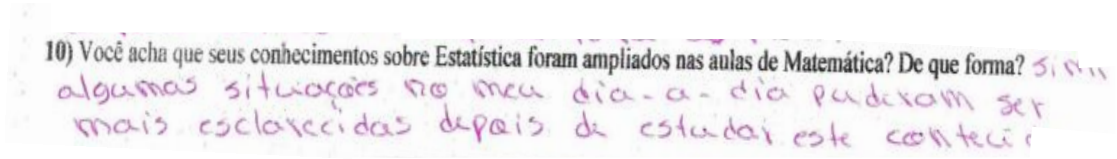 10) Você acha que seus conhecimentos sobre Estatística foram ampliados nas aulas de Matemática? De que forma? Sim
algumas situações no meu dia-a-dia puderam ser
mais esclarecidas depois de estudar este